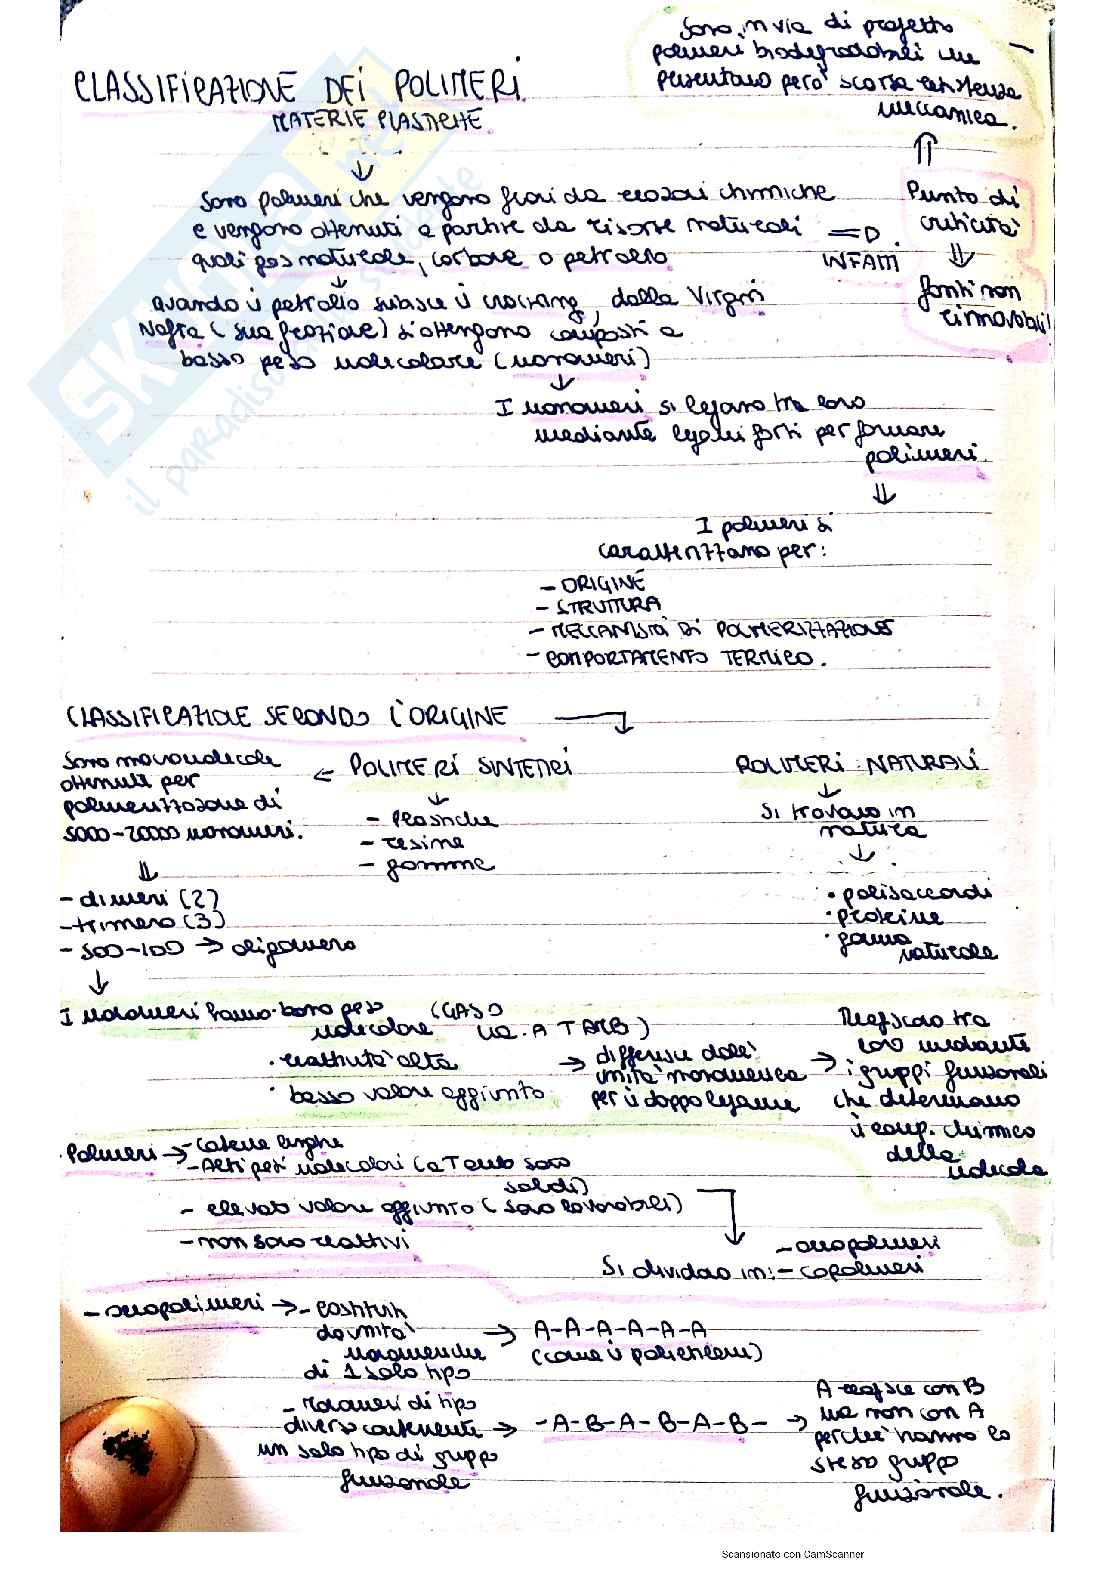 Sono in via di progetto
polimeri biodegradabili che
presentano però scarsa resistenza
meccanica.
CLASSIFICAZIONE DEI POLIMERI
MATERIE PLASTICHE
Sono polimeri che vengono fuori da reazioni chimiche
e vengono ottenuti a partire da risorse naturali
quali gas naturale, carbone o petrolio
INFATTI
Punto di
criticità
fonti non
rinnovabili!
Quando il petrolio subisce il cracking, dalla Virgin
Nafta (sua frazione) si ottengono composti a
basso peso molecolare (monomeri)
I monomeri si legano tra loro
mediante legami forti per formare
polimeri
I polimeri si
caratterizzano per:
- ORIGINE
- STRUTTURA
- MECCANISMI DI POLIMERIZZAZIONE
- COMPORTAMENTO TERMICO.
CLASSIFICAZIONE SECONDO L'ORIGINE
Sono macromolecole
ottenute per
polimerizzazione di
5000-20000 monomeri.
POLIMERI SINTETICI
- plastiche
- resine
- gomme
POLIMERI NATURALI
Si trovano in
natura
• polisaccaridi
• proteine
• gomma
naturale
- dimeri (2)
- trimero (3)
- 500-100 → oligomero
I monomeri hanno basso peso
molecolare (GAS o
LIQ. A T AMB)
• reattività alta
• basso valore aggiunto
→ differisce dall'
unità monomerica
per il doppio legame
→ Reagiscono tra
loro mediante
i gruppi funzionali
che determinano
il comp. chimico
della
molecola
Polimeri → - catene lunghe
- Alti pesi molecolari (a T amb sono
solidi)
- elevato valore aggiunto (sono lavorabili)
- non sono reattivi
Si dividono in: - omopolimeri
- copolimeri
- omopolimeri → - costituiti
da unità
monomeriche
di 1 solo tipo
→ A-A-A-A-A-A
(come il polietilene)
- monomeri di tipo
diverso contenente
un solo tipo di gruppo
funzionale
→ -A-B-A-B-A-B- →
A reagisce con B
ma non con A
perché hanno lo
stesso gruppo
funzionale.
Scansionato con CamScanner